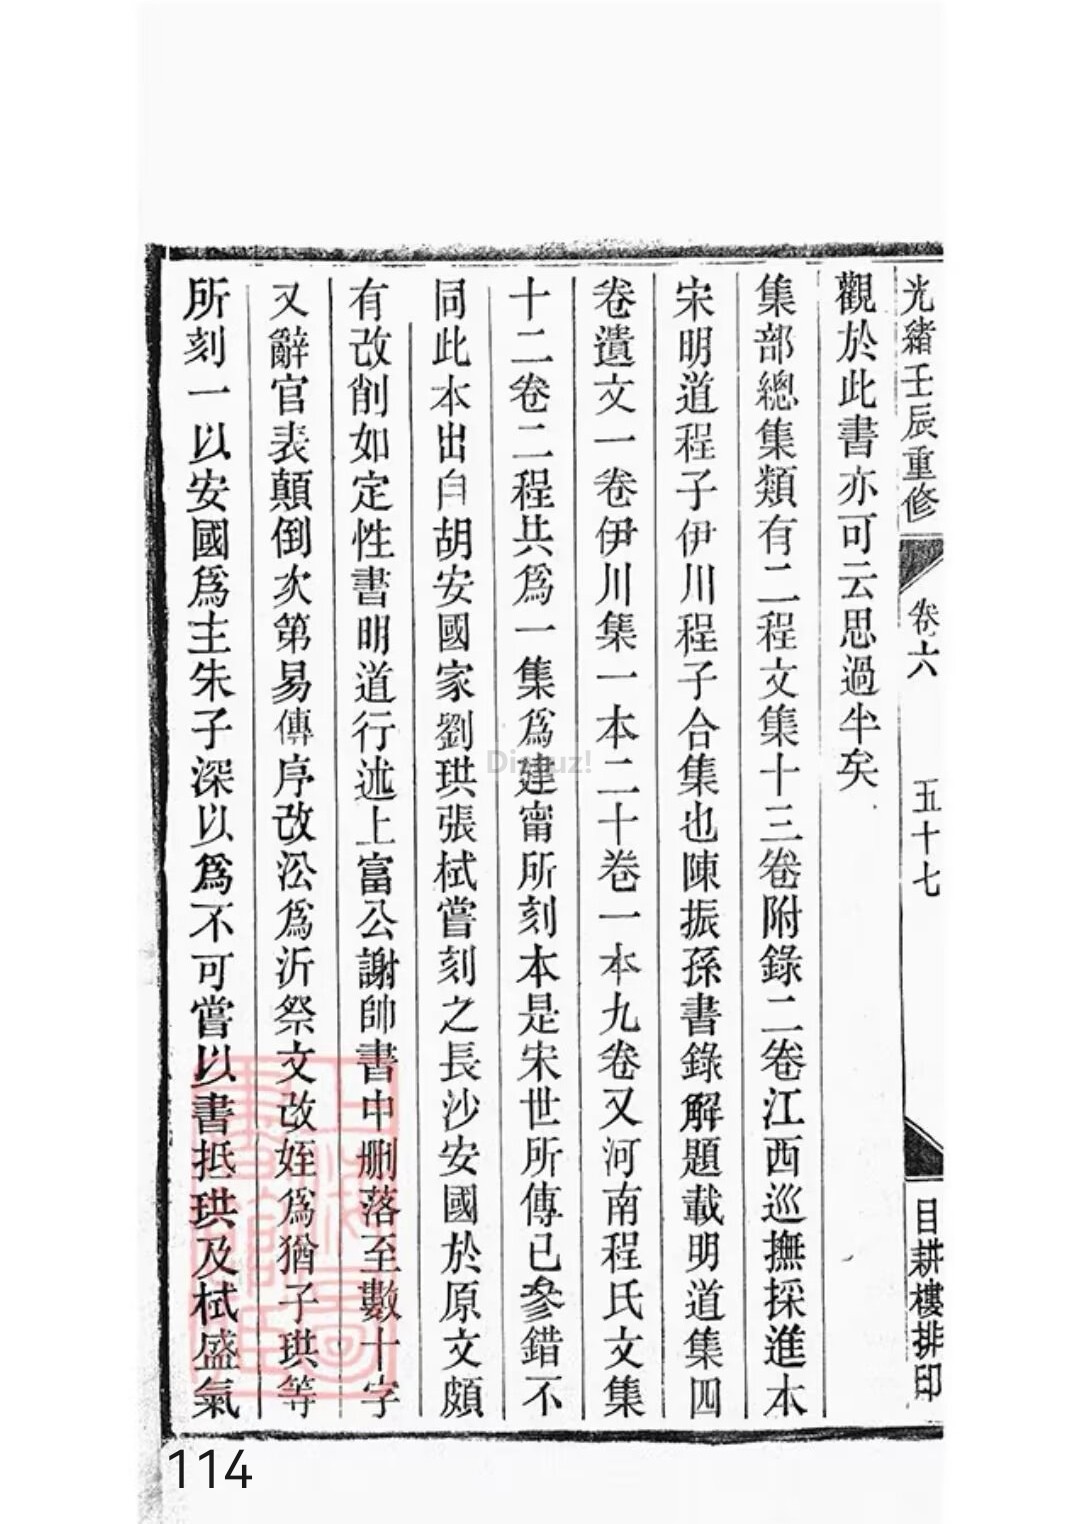 光緒壬辰重修
卷六
五十七
目耕樓排印
觀於此書亦可云思過半矣
集部總集類有二程文集十三卷附錄二卷江西巡撫採進本
宋明道程子伊川程子合集也陳振孫書錄解題載明道集四
卷遺文一卷伊川集一本二十卷一本九卷又河南程氏文集
十二卷二程共爲一集爲建甯所刻本是宋世所傳已參錯不
同此本出自胡安國家劉珙張栻嘗刻之長沙安國於原文頗
有改削如定性書明道行述上富公謝帥書中刪落至數十字
又辭官表顛倒次第易傳序改沿爲泝祭文改姪爲猶子珙等
所刻一以安國爲主朱子深以爲不可嘗以書抵珙及栻盛氣
上海圖書館藏
Discuz!
114